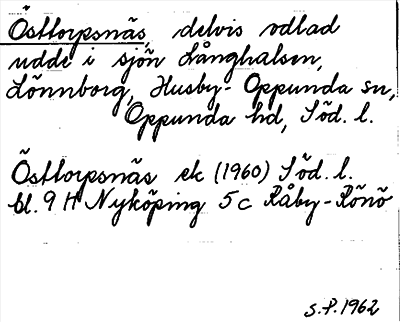 Östtorpsnäs, delvis odlad
udde i sjön Långhalsen,
Lönnborg, Husby-Oppunda sn,
Oppunda hd, Söd. l.
Östtorpsnäs ek (1960) Söd. l.
bl. 9 H Nyköping 5c Råby-Rönö
S.P. 1962